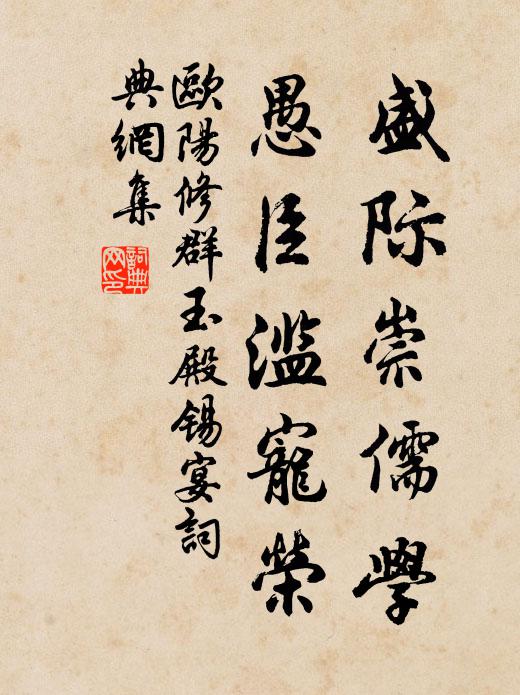 盛际崇儒學
愚臣濫寵榮
歐陽修群玉殿锡宴詞
典網集
詞典網印